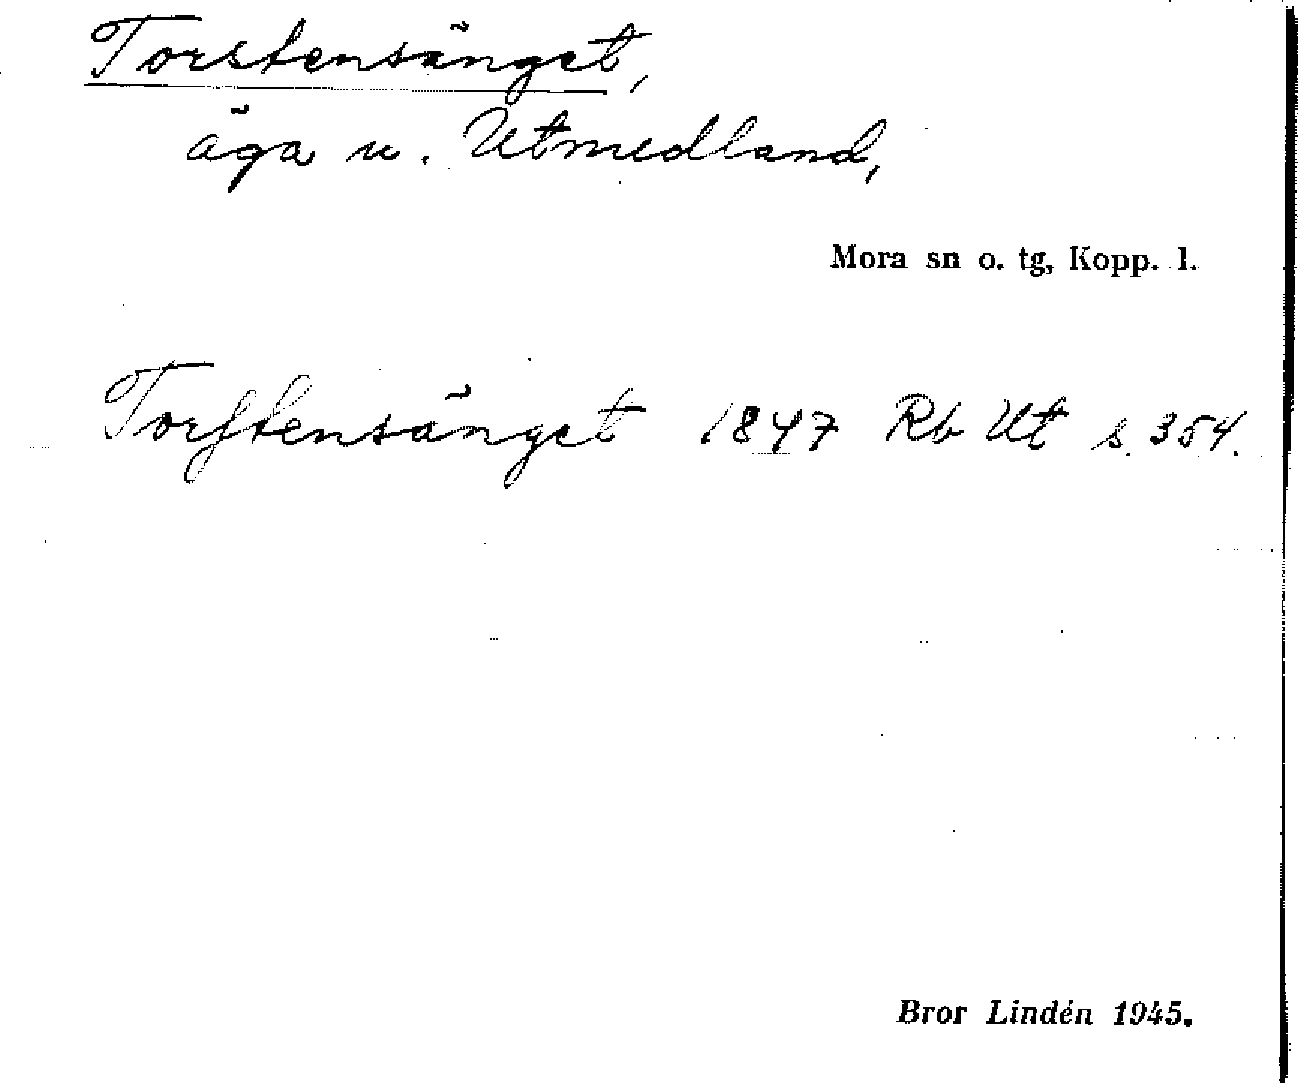 Torstensänget,
äga u. Utmedland,
Mora sn o. tg, Kopp. l.
Torſtensänget 1847 Rb Ut s. 354.
Bror Lindén 1945.